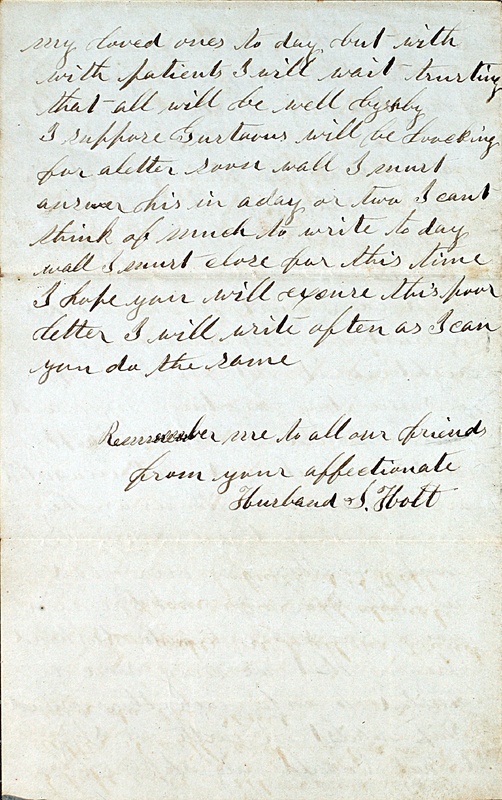 my loved ones to day but with
with patients I will wait trusting
that all will be well by & by
I suppose Gurtavus will be looking
for a letter soon wall I must
answer his in a day or two I cant
think of much to write to day
wall I must close for this time
I hope your will excuse this poor
letter I will write often as I can
you do the same
Remember me to all our friends
from your affectionate
Husband S. Holt